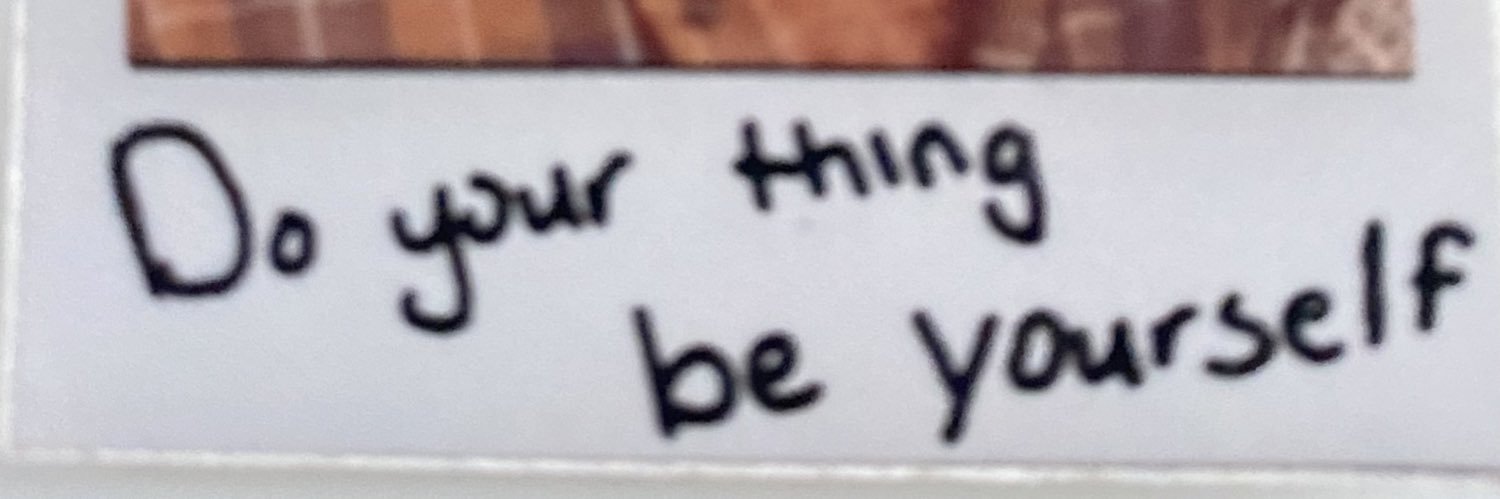 Do your thing
be yourself